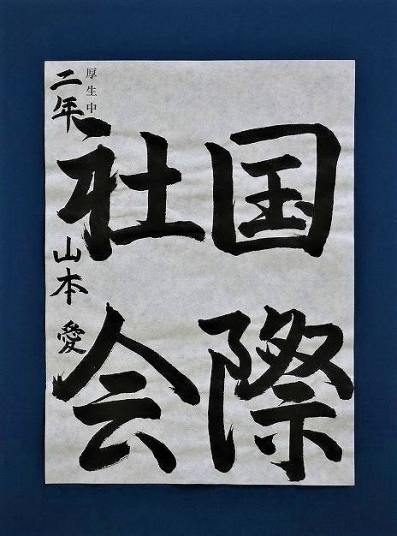 国際
社会
厚生中
二年 山本 愛